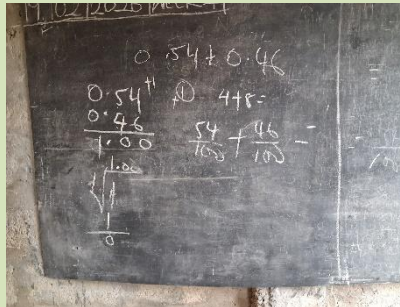 9/02/2026 WEEK 4
0.54 + 0.46
0.54 +
0.46
1.00
4+8=
54/100 + 46/100 =
1.00
1
0
=